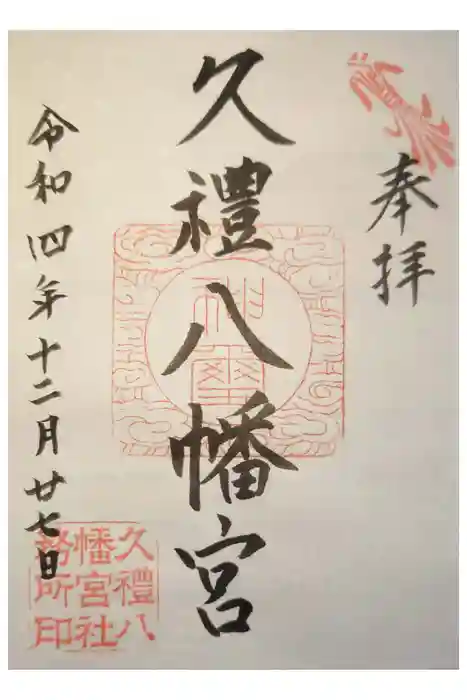 奉拝
久禮八幡宮
令和四年十二月廿七日
久禮八
幡宮社
務所印